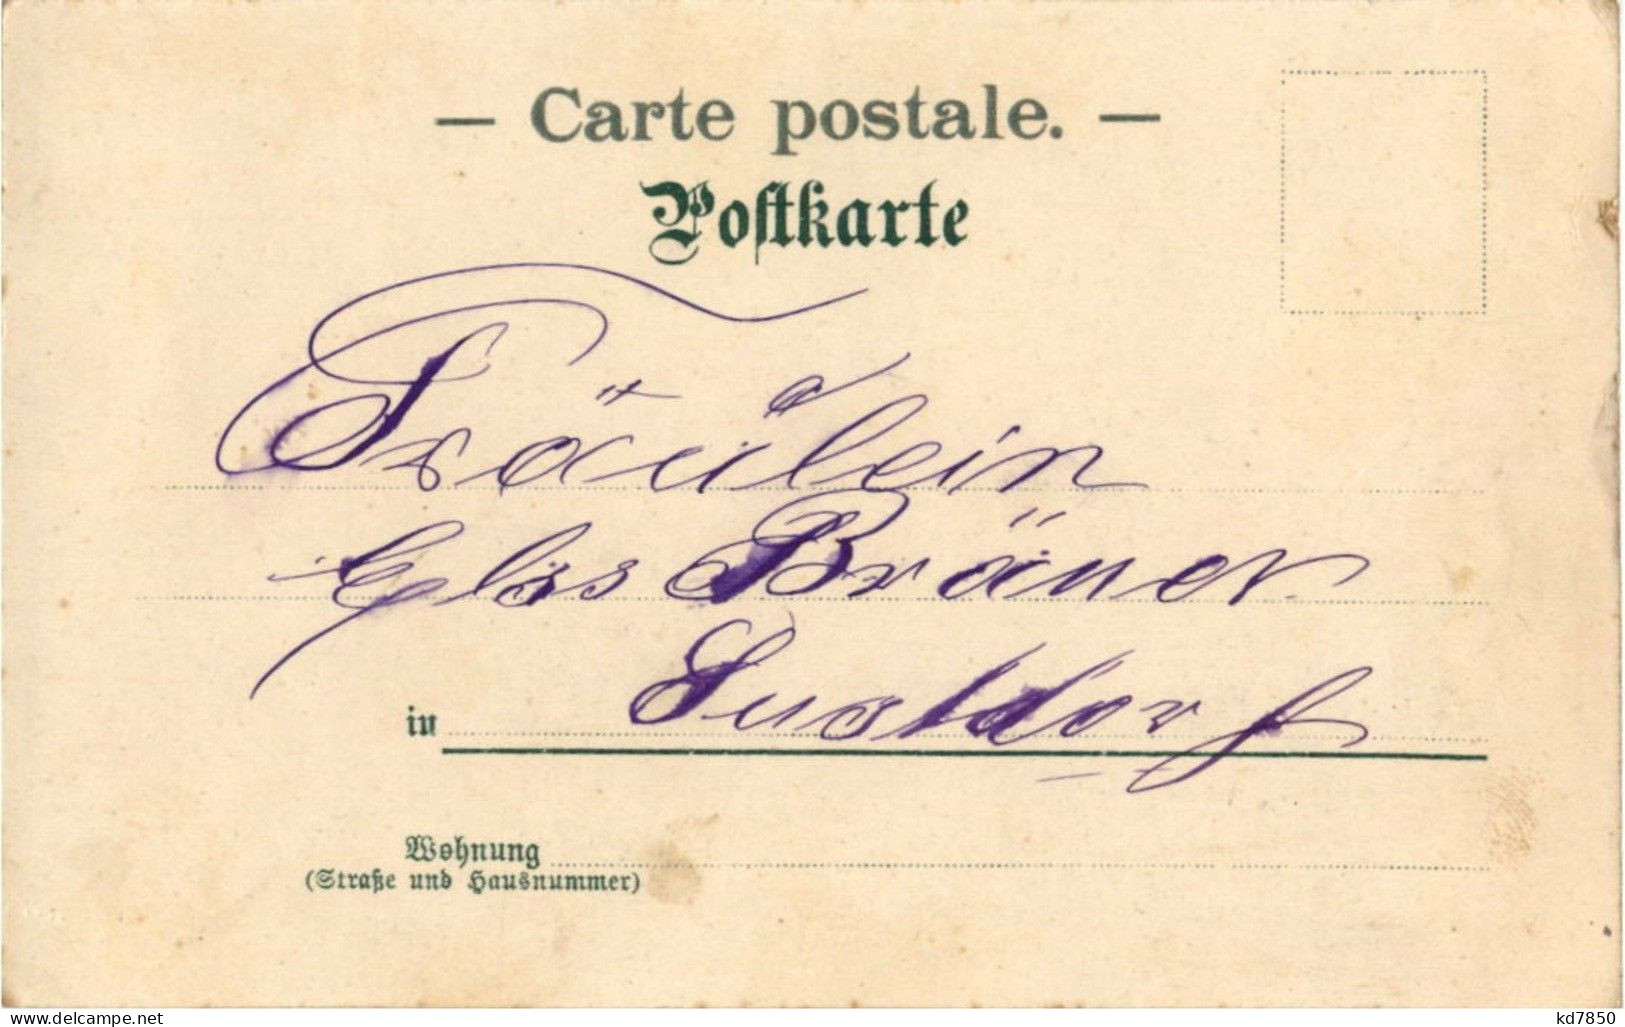 — Carte postale. —
Postkarte
Fräulein
Elsa Bräuer
in Lustdorf
Wohnung
(Straße und Hausnummer)
www.delcampe.net
kd7850